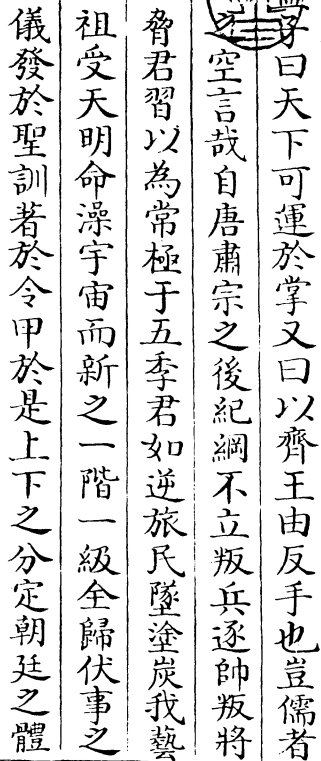 子曰天下可運於掌又曰以齊王由反手也豈儒者
之空言哉自唐肅宗之後紀綱不立叛兵逐帥叛將
脅君習以為常極于五季君如逆旅民墜塗炭我藝
祖受天明命澡宇宙而新之一階一級全歸伏事之
儀發於聖訓著於令甲於是上下之分定朝廷之體